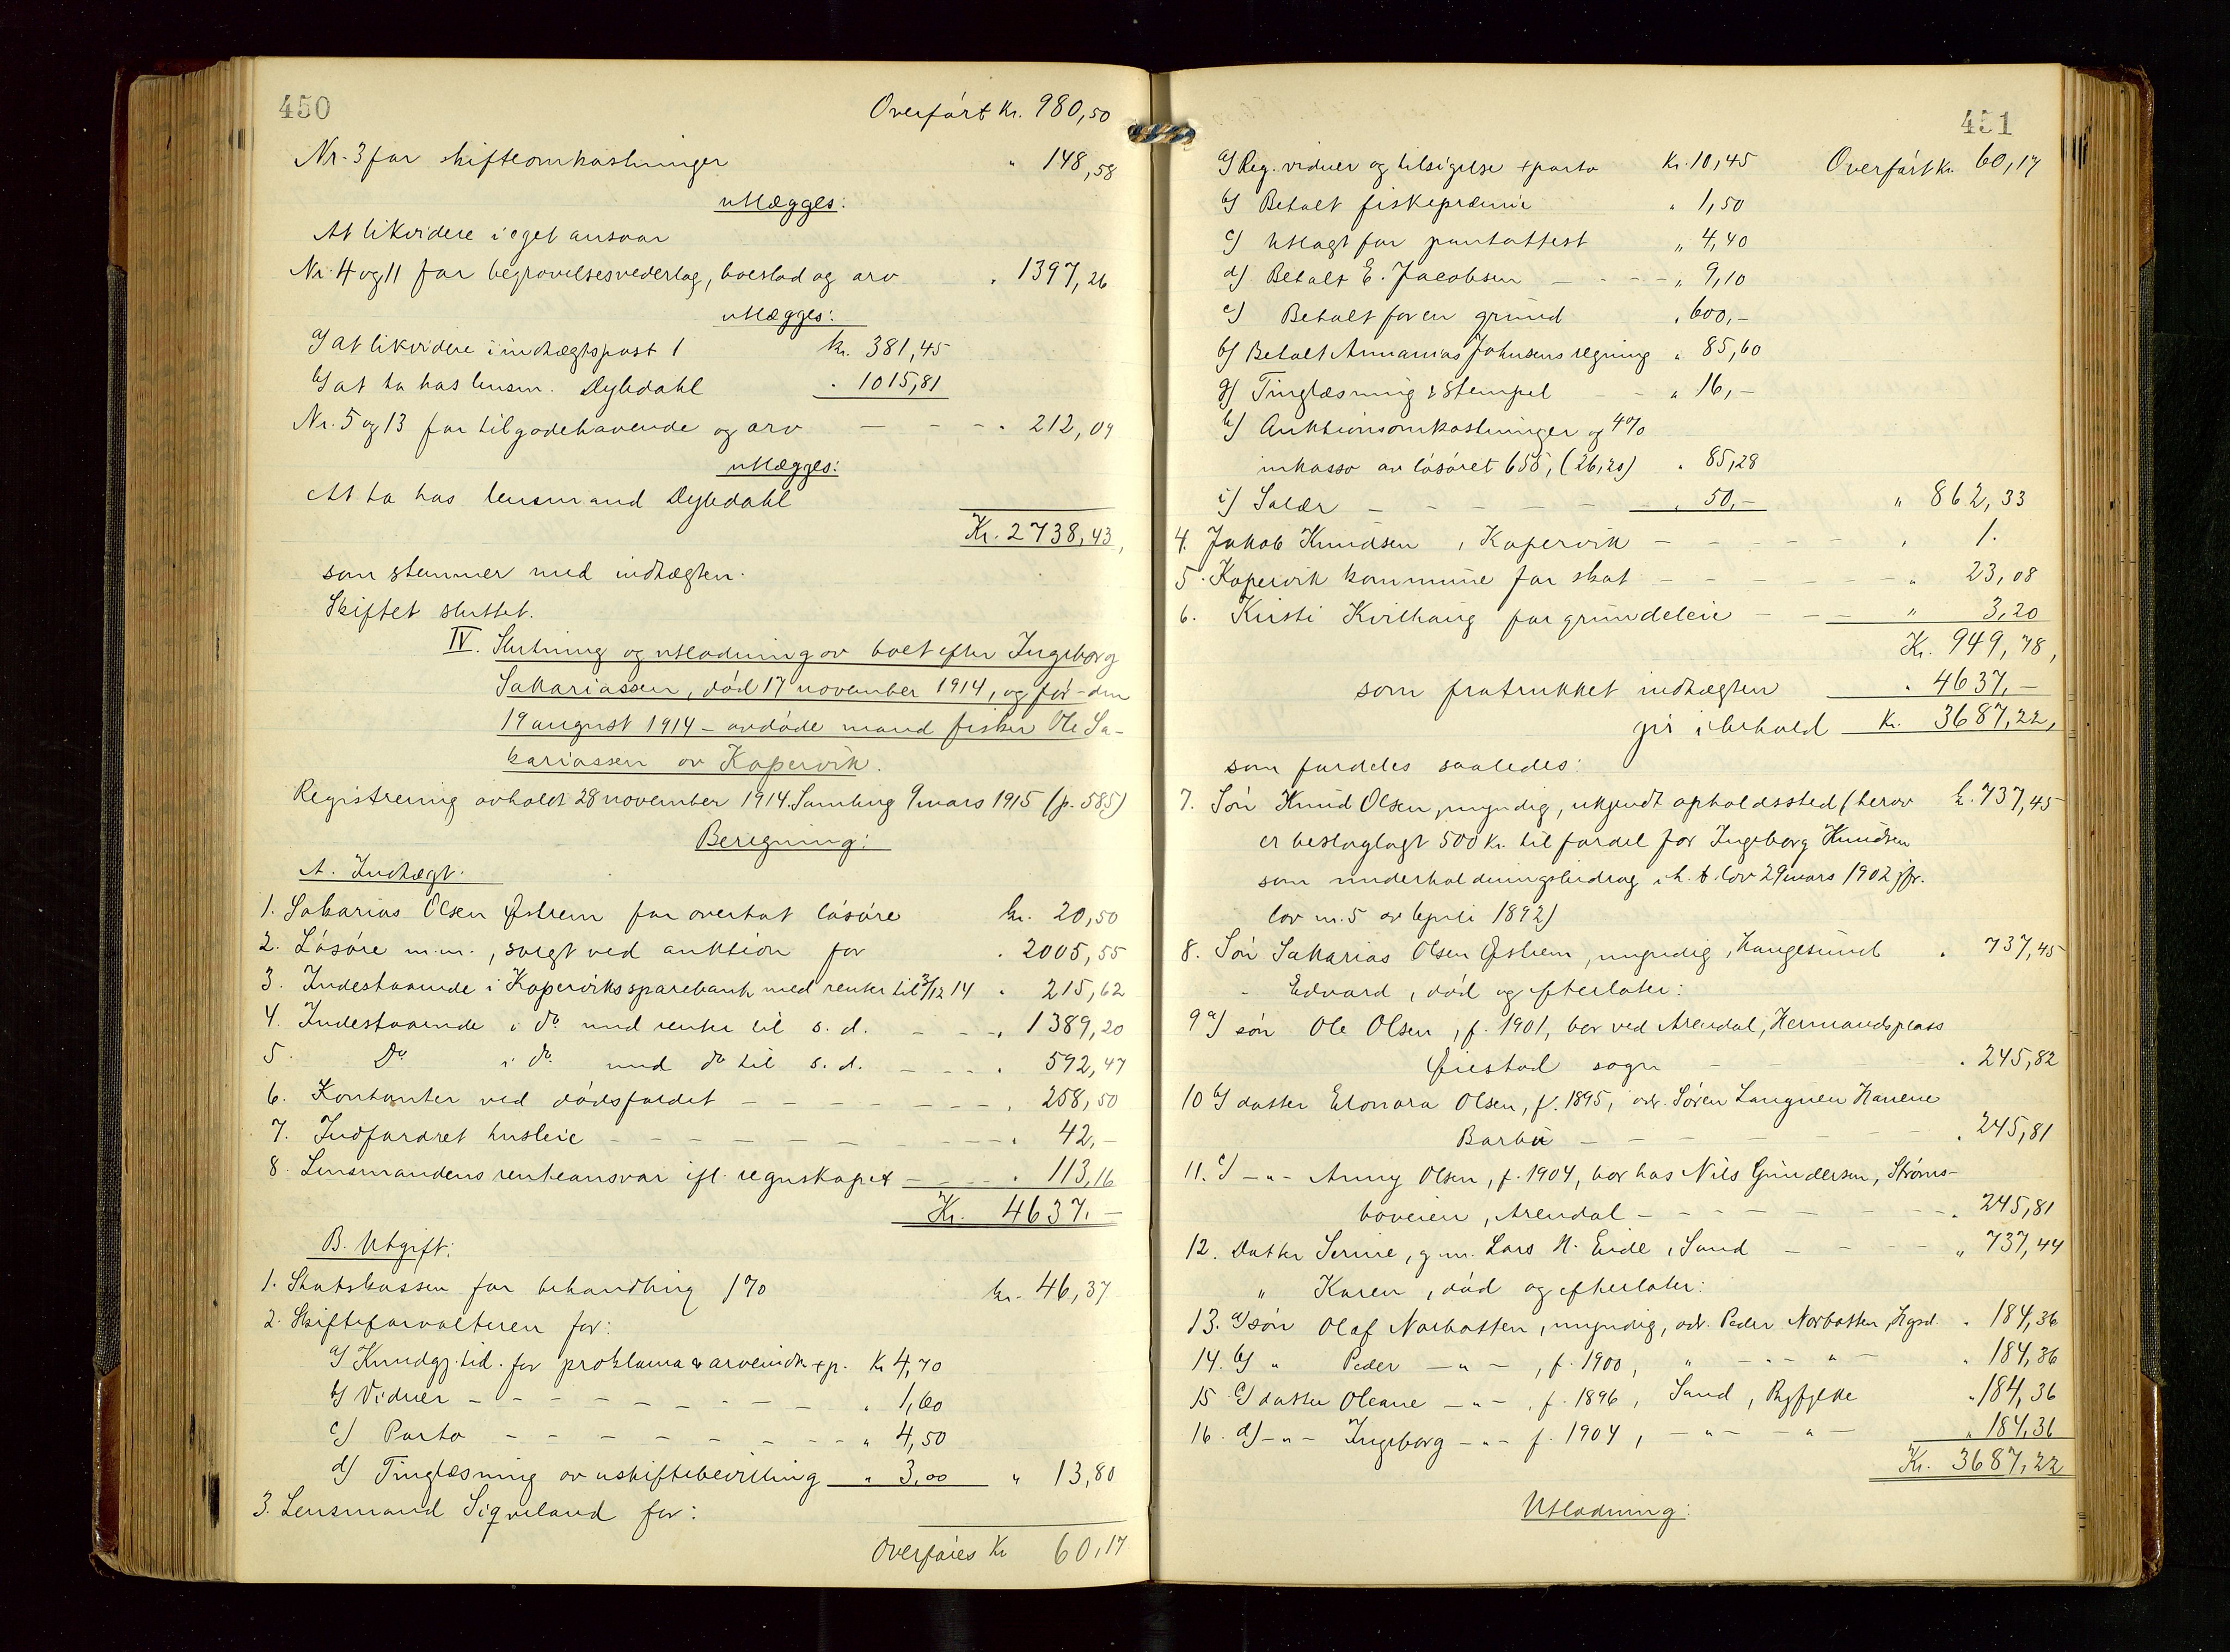 450
Overført Kr. 980,50
Nr. 3 for skifteomkostninger " 148,58
utlægges:
At likvidere i eget ansvar
Nr. 4 og 11 for begravelsesvederlag, boeslod og arv " 1397,26
utlægges:
a) at likvidere i indtægtspost 1 kr. 381,45
b) at ta hos lensm. Dybdahl " 1015,81
Nr. 5 og 13 for tilgodehavende og arv — — — " 212,09
utlægges:
At ta hos lensmand Dybdahl
Kr. 2738,43,
som stemmer med indtægten.
Skiftet sluttet.
IV. Slutning og utlodning av boet efter Ingeborg
Sakariassen, død 17 november 1914, og før - den
19 august 1914 - avdøde mand fisker Ole Sa-
kariassen av Kopervik.
Registrering avholdt 28 november 1914. Samling 9 mars 1915 (p. 585)
Beregning:
A. Indtægt.
1. Sakarias Olsen Østrem for overtat løsøre kr. 20,50
2. Løsøre m.m., solgt ved auktion for " 2005,55
3. Indestaaende i Koperviks sparebank med renter til 3/12 14 " 215,62
4. Indestaaende i do med renter til s. d. — — " 1389,20
5. Do i do med do til s. d. — — — " 592,47
6. Kontanter ved dødsfaldet — — — — — — — " 258,50
7. Indfordret husleie — — — — — — — — " 42,-
8. Lensmandens renteansvar ifl. regnskapet — — — " 113,16
Kr. 4637.-
B. Utgift:
1. Statskassen for behandling 1% kr. 46,37
2. Skifteforvalteren for:
a) Kundgj. tid. for proklama & arveindk. + p. Kr 4,70
b) Vidner — — — — — — — — " 1,60
c) Porto — — — — — — — — " 4,50
d) Tinglæsning av uskiftebevilling " 3,00 " 13,80
3. Lensmand Siqveland for:
Overføres Kr 60,17
451
a) Reg. vidner og tilsigelse + porto Kr. 10,45 Overført Kr. 60,17
b) Betalt fiskepræmie " 1,50
c) Utlagt for pantattest " 4,40
d) Betalt E. Jacobsen — — — " 9,10
e) Betalt for en grund " 600,-
f) Betalt Annanias Johnsens regning " 85,60
g) Tinglæsning & stempel — — " 16,-
h) Auktionsomkostninger og 4%
inkasso av løsøret 655, (26,20) " 85,28
i) Salær — — — — — " 50,- " 862,33
4. Jakob Knudsen, Kopervik — — — — — " 1.
5. Kopervik kommune for skat — — — — — — " 23,08
6. Kirsti Kvilhaug for grundeleie — — — " 3,20
Kr. 949,78,
som fratrukket indtægten " 4637,-
gir i behold Kr. 3687,22,
som fordeles saaledes:
7. Søn Knud Olsen, myndig, ukjendt opholdssted (herav k. 737,45
er beslaglagt 500 kr. til fordel for Ingeborg Knudsen
som underholdningsbidrag i h. t. lov 29 mars 1902 jfr.
lov nr. 5 av 6 juli 1892)
8. Søn Sakarias Olsen Østrem, myndig, Haugesund " 737,45
- Edvard, død og efterlater:
9 a) søn Ole Olsen, f. 1901, bor ved Arendal, Hermandsplass
Øiestad sogn — — — — " 245,82
10 b) datter Elonora Olsen, f. 1895, adr. Søren Langnen Havene
Barbu — — — — — — — " 245,81
11. c) — " — Anny Olsen, f. 1904, bor hos Nils Gundersen, Strøms-
boveien, Arendal — — — — — — — " 245,81
12. Datter Serine, g. m. Lars H. Eide, Sand — — — — " 737,44
" Karen, død og efterlater:
13. a) søn Olaf Norbotten, myndig, adr. Peder Norbotten, Hgsd. " 184,36
14. b) " Peder — " —, f. 1900, " — " — " — " 184,36
15 c) datter Oleane — " —, f. 1896, Sand, Ryfylke " 184,36
16. d) — " — Ingeborg — " — f. 1904, — " — — " — " 184,36
Kr. 3687,22
Utlodning: